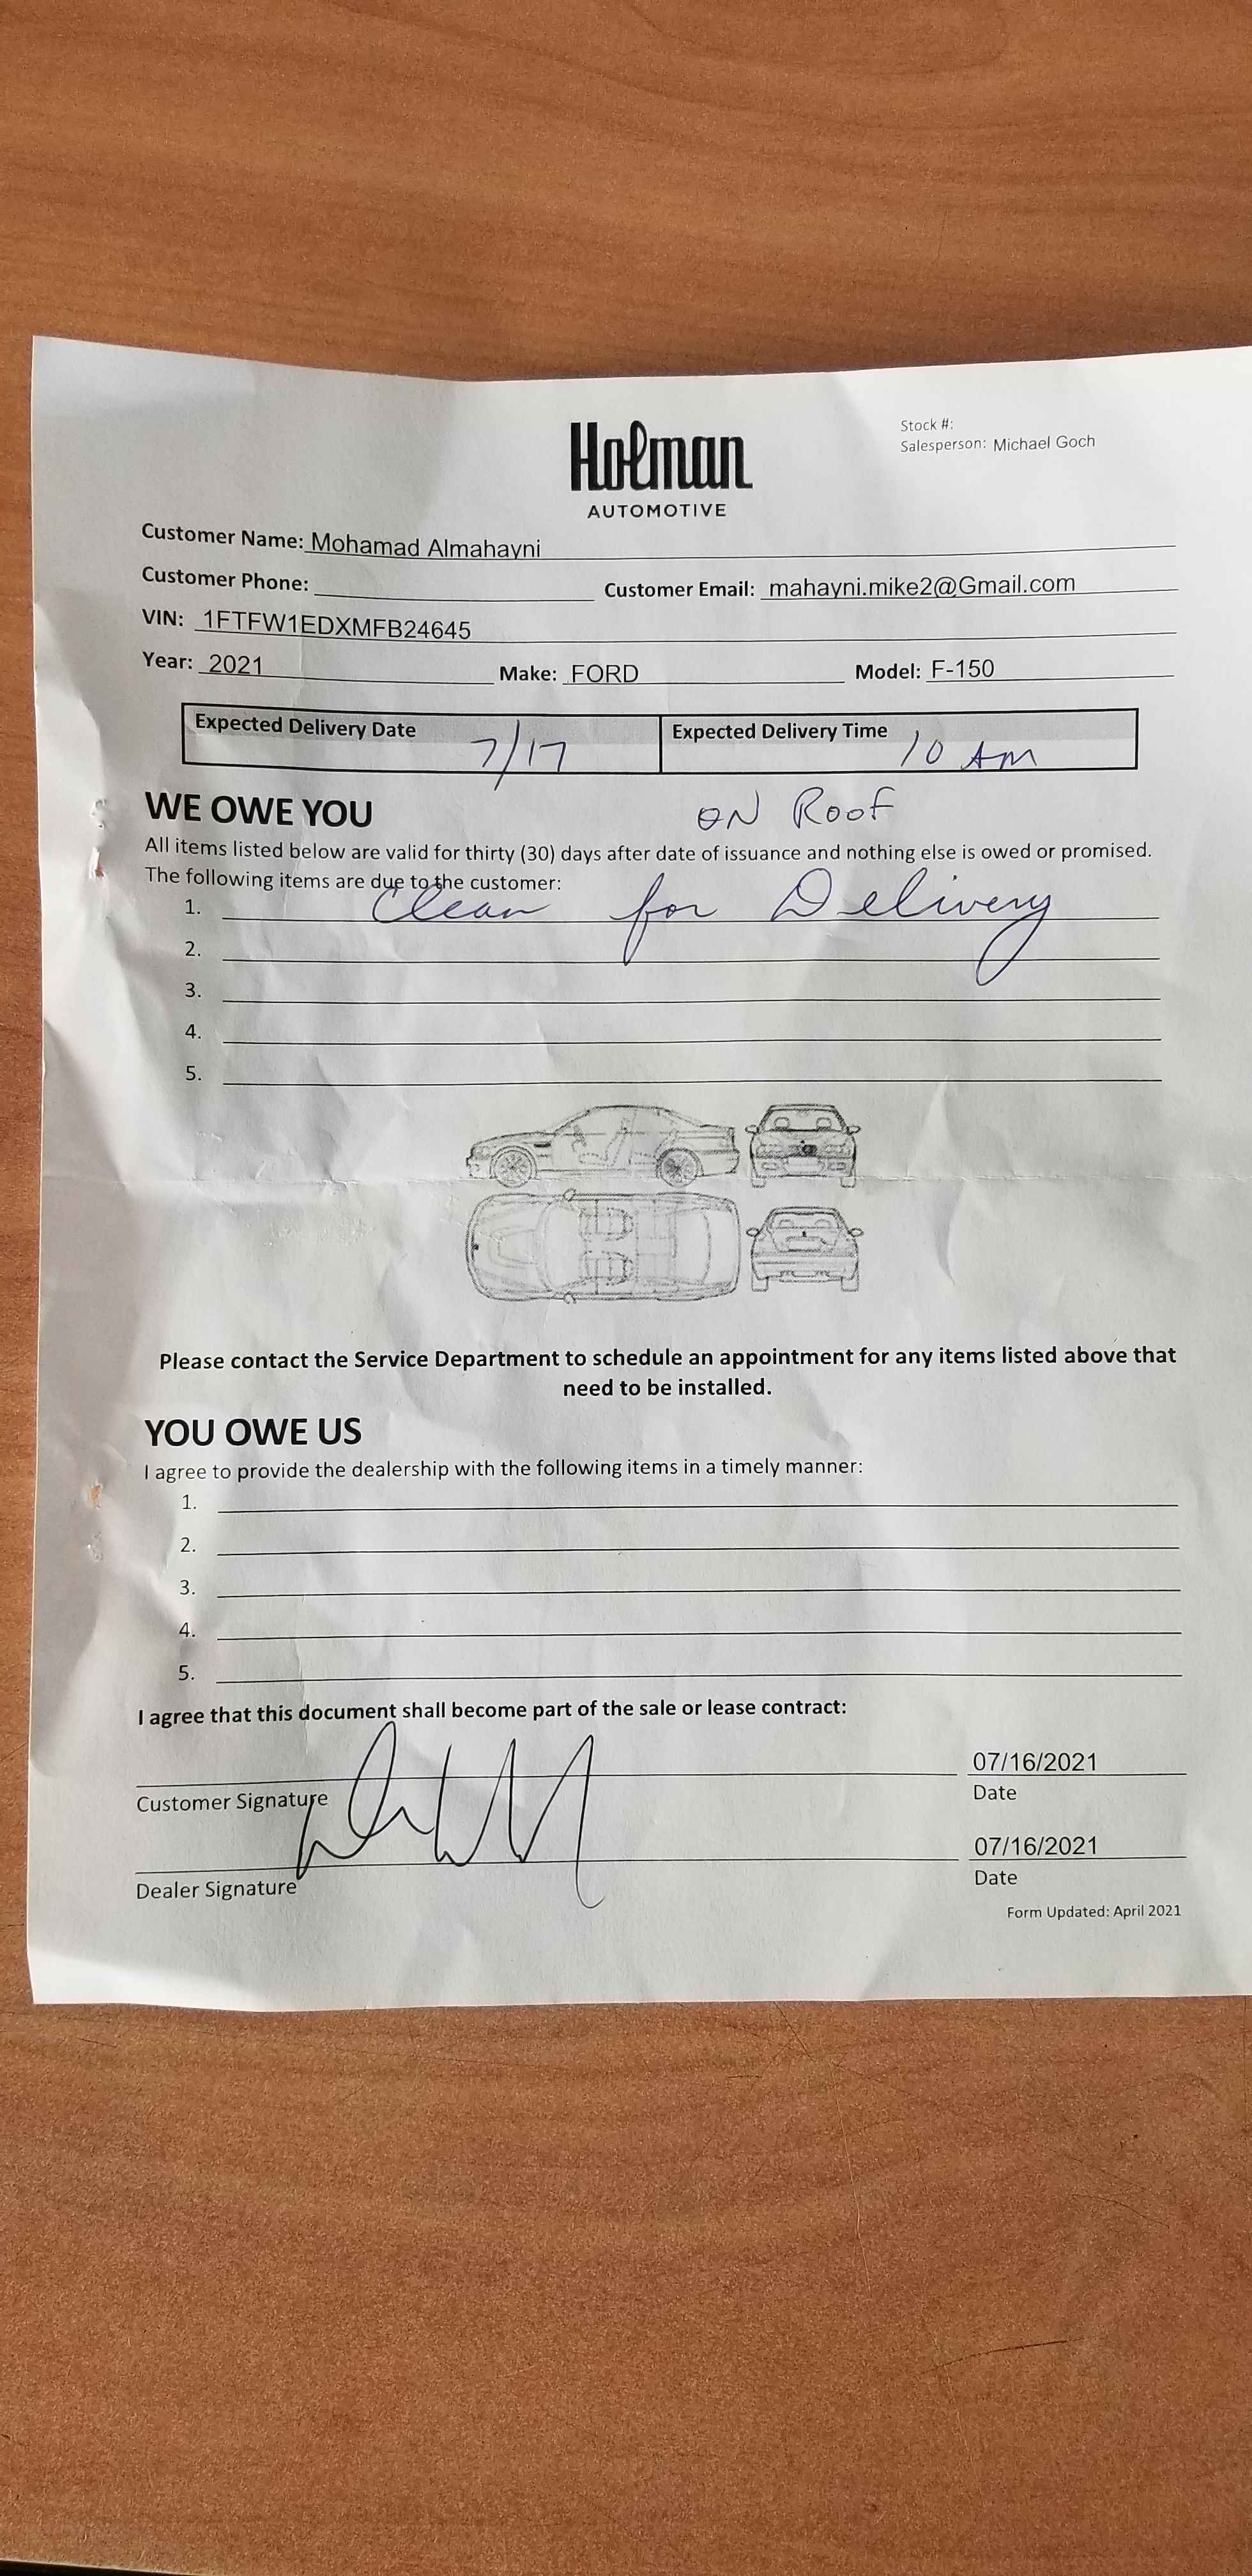 Holman
AUTOMOTIVE
Stock #:
Salesperson: Michael Goch
Customer Name: Mohamad Almahayni
Customer Phone: Customer Email: mahayni.mike2@Gmail.com
VIN: 1FTFW1EDXMFB24645
Year: 2021 Make: FORD Model: F-150
Expected Delivery Date 7/17 Expected Delivery Time 10 AM
WE OWE YOU ON ROOF
All items listed below are valid for thirty (30) days after date of issuance and nothing else is owed or promised.
The following items are due to the customer:
1. Clean for Delivery
2.
3.
4.
5.
Please contact the Service Department to schedule an appointment for any items listed above that
need to be installed.
YOU OWE US
I agree to provide the dealership with the following items in a timely manner:
1.
2.
3.
4.
5.
I agree that this document shall become part of the sale or lease contract:
07/16/2021
Customer Signature Date
07/16/2021
Dealer Signature Date
Form Updated: April 2021